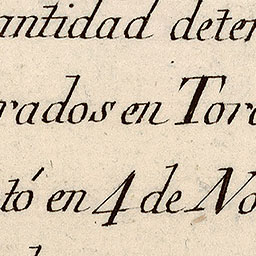 antidad deter
rados en Tor
tó en 4 de No